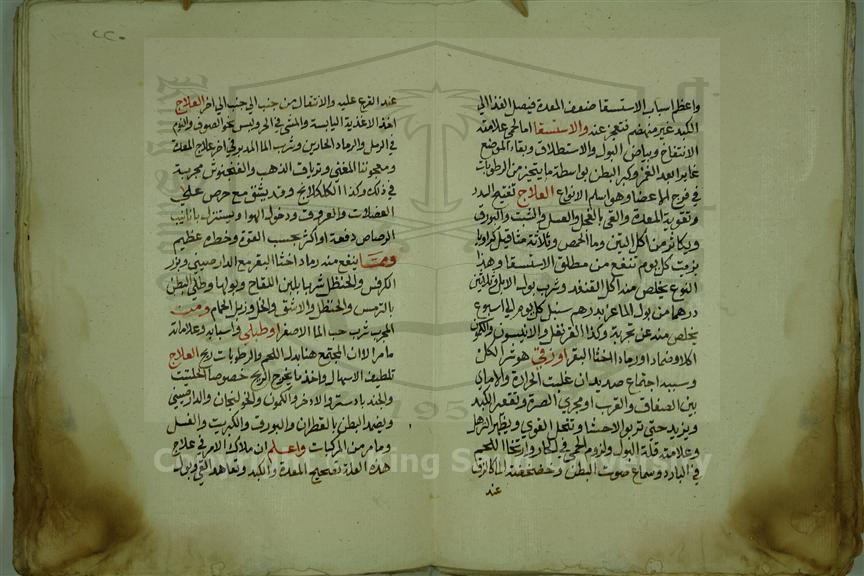 واعظم اسباب الاستسقا ضعف المعدة فيصل الغذا الي
الكبد غير منهضم فتعجز عنه والاستسقا اما لحمي علامته
الانتفاخ وبياض البول والاستطلاق وبقاء الموضع
غايرا بعد الغمز وكبر البطن بواسطة ما يتحيز من الرطوبات
في فرج الاعضا وهو اسلم الانواع العلاج تفتيح السدد
وتقوية المعدة والقي بالفجل والعسل والشبت والبورق
ويكاثر من اكل التين وما الحمص وثلاثة مثاقيل كراويا
بزيت كل يوم تنفع من مطلق الاستسقا وهذا
النوع يخلص منه اكل القنفد وشرب بول الابل وثلاثين
درهما من بول الماعز بدرهم سنبل كل يوم الي اسبوع
يخلص منه عن تجربة وكذا القرنفل والانيسون والكمون
اكلا وضمادا ورماد اخثا البقر او زقي هو شر الكل
وسببه اجتماع صديد ان غلبت الحرارة والا مائي
بين الصفاق والثرب او مجري الصرة وتقعر الكبد
ويزيد حتي تربو الاحشا وتنحل القوي ويظهر الترهل
وعلامته قلة البول ولزوم الحمي في الحار وارتخا اللحم
في البارد وسماع صوت البطن وخضخضة الماء كالزق
عند
٢٢٠
عند القرع عليه والانتقال من جنب الي جنب الي اخر العلاج
اخذ الاغذية اليابسة والمشي في الحر ولبس نحو الصوف والنوم
في الرمل والرماد الحارين وشرب الما المدبر في اخر علاج المعدة
ومعجوننا المغني وترياق الذهب والفنجنوش مجربة
في ذلك وكذا الكلكلانج وقد يشق مع حرص علي
العضلات والعروق ودخول الهوا ويستنزل بانابيب
الرصاص دفعة او اكثر بحسب القوة وخطره عظيم
ومما ينفع منه رماد اخثا البقر مع الدارصيني وبزر
الكرفس والحنظل شربا بلبن اللقاح وبولها وطلي البطن
بالترمس والحنظل والاشق والخل وزبل الحمام ومن
المجرب شرب حب الما الاصفر او طبلي واسبابه وعلاماته
ما مر الا ان المجتمع هنا بدل اللحم والرطوبات ريح العلاج
تلطيف الاسهال واخذ ما يخرج الريح خصوصا الحلتيت
والجندبادستر والاذخر والكمون والخولنجان والدارصيني
ويضمد البطن بالقطران والبورق والكبريت والعسل
وما مر من المركبات واعلم ان ملاك الامر في علاج
هذه العلة تصحيح المعدة والكبد وتعاهد القي